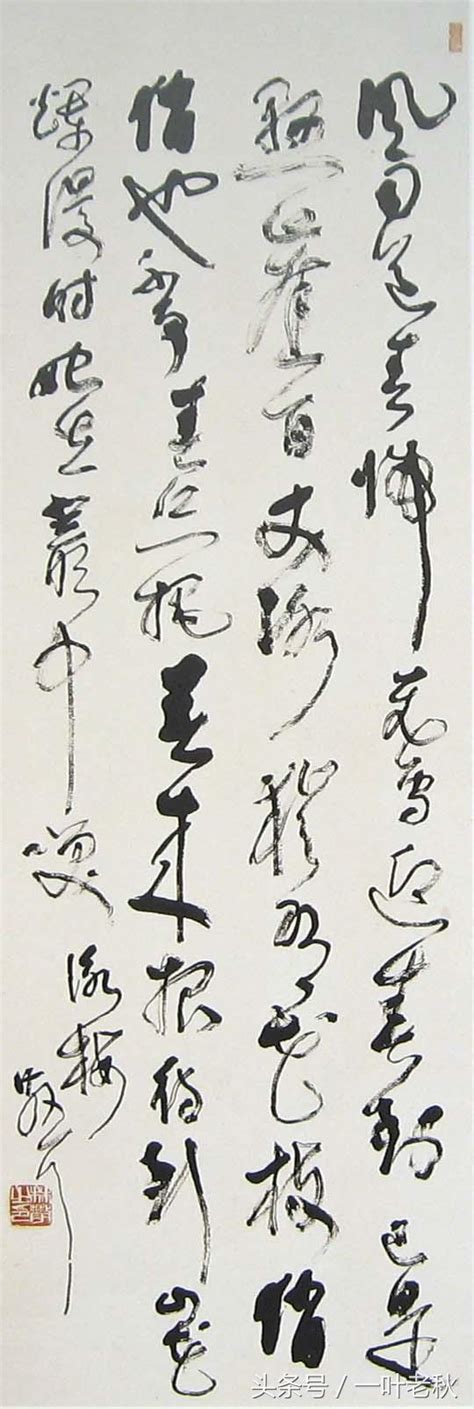 风雨送春归飞雪迎春到已是
悬崖百丈冰犹有花枝俏
俏也不争春只把春来报待到山花
烂漫时她在丛中笑
咏梅
散耳
头条号/一叶老秋